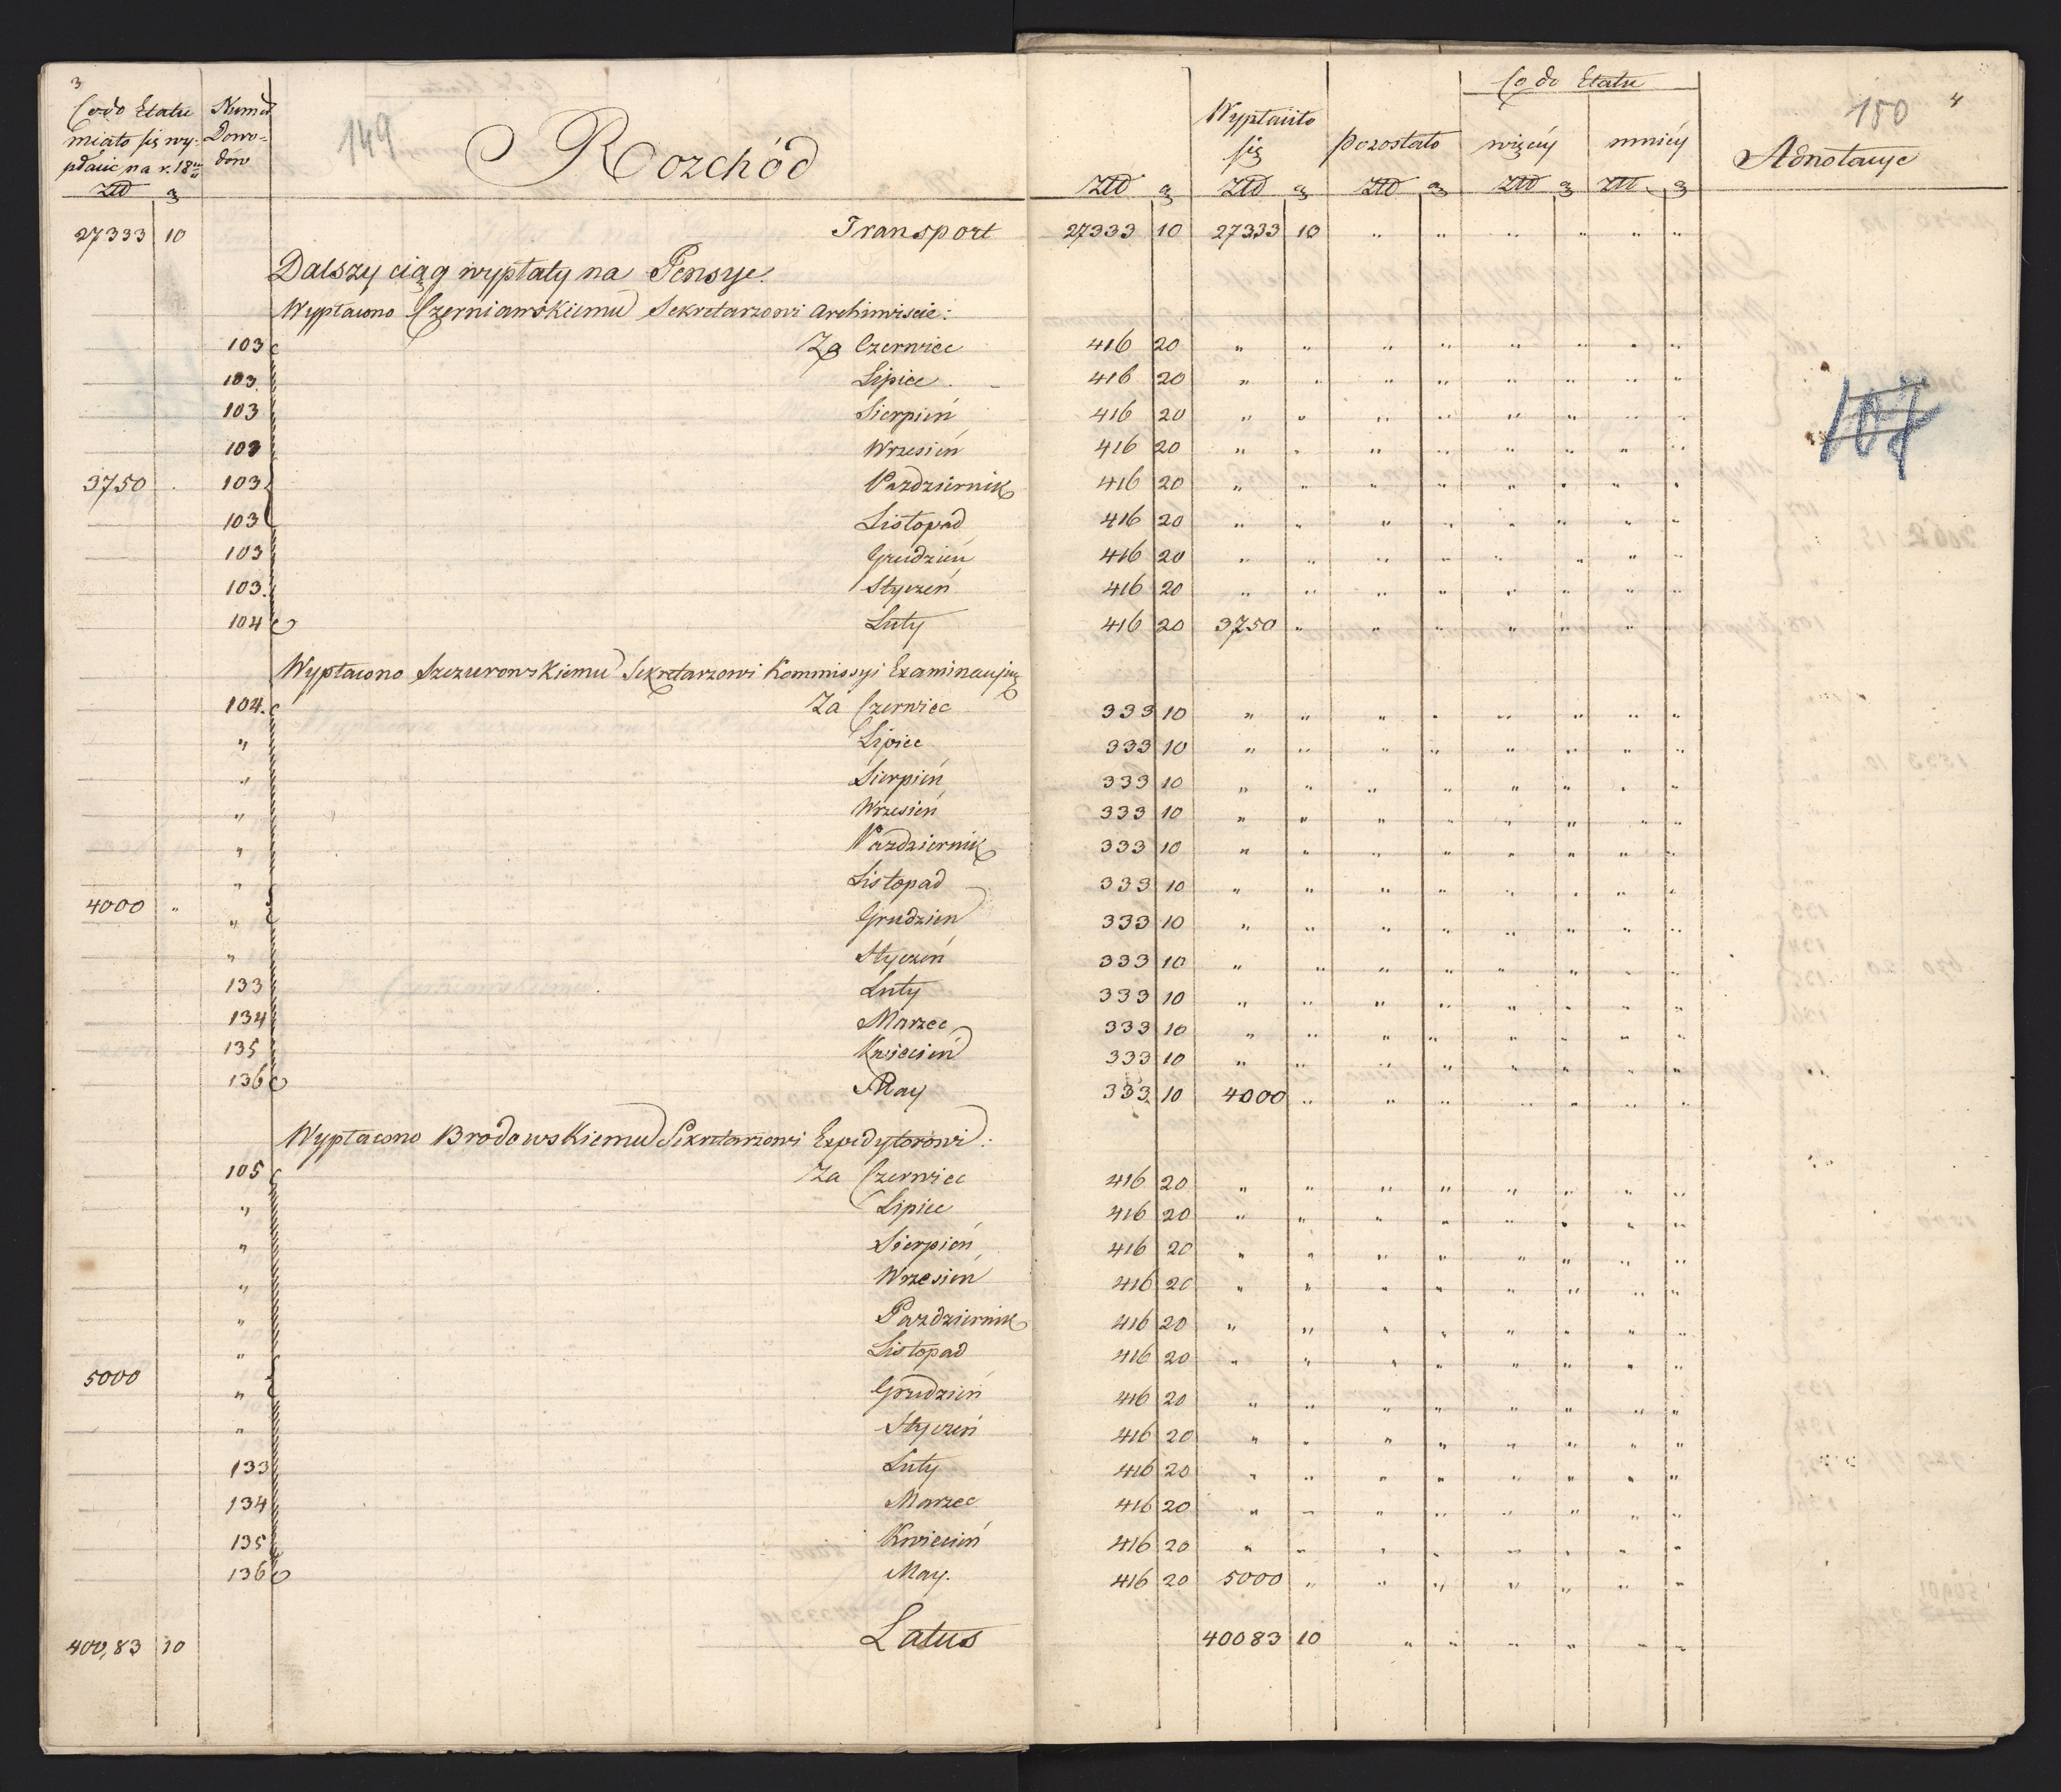 3
Co do Etatu miało się wypłacić na r. 18 Złł g
Numer Dowodów
149
Rozchód
Złł g
Wypłaciło się Złł g
Pozostało Złł g
Co do Etatu
więcéy Złł g
mniéy Złł g
Adnotacye
150
4
27333 10 Transport 27333 10 27333 10 " " " " " "
Dalszy ciąg wypłaty na Pensye.
Wypłacono Czerniawskiemu Sekretarzowi Archiwiscie:
103 Za Czerwiec 416 20 " " " " " " " "
103 Lipiec 416 20 " " " " " " " "
103 Sierpień 416 20 " " " " " " " "
103 Wrzesień 416 20 " " " " " " " "
3750 . 103 Pazdziernik 416 20 " " " " " " " "
103 Listopad 416 20 " " " " " " " "
103 Grudzień 416 20 " " " " " " " "
103 Styczeń 416 20 " " " " " " " "
104 Luty 416 20 3750 " " " " " " "
107
Wypłacono Szczurowskiemu Sekretarzowi Kommissyi Examinacyiney
104. Za Czerwiec 333 10 " " " " " " " "
" Lipiec 333 10 " " " " " " " "
" Sierpień 333 10 " " " " " " " "
" Wrzesień 333 10 " " " " " " " "
" Pazdziernik 333 10 " " " " " " " "
" Listopad 333 10 " " " " " " " "
4000 " " Grudzień 333 10 " " " " " " " "
" Styczeń 333 10 " " " " " " " "
133 Luty 333 10 " " " " " " " "
134 Marzec 333 10 " " " " " " " "
135 Kwiecień 333 10 " " " " " " " "
136 May 333 10 4000 " " " " " " "
Wypłacono Brodowskiemu Sekretarzowi Expedytorowi:
105 Za Czerwiec 416 20 " " " " " " " "
" Lipiec 416 20 " " " " " " " "
" Sierpień 416 20 " " " " " " " "
" Wrzesień 416 20 " " " " " " " "
" Pazdziernik 416 20 " " " " " " " "
" Listopad 416 20 " " " " " " " "
5000 " Grudzień 416 20 " " " " " " " "
" Styczeń 416 20 " " " " " " " "
133 Luty 416 20 " " " " " " " "
134 Marzec 416 20 " " " " " " " "
135 Kwiecień 416 20 " " " " " " " "
136 May. 416 20 5000 " " " " " " "
400,83 10 Latus 40083 10 " " " " " "